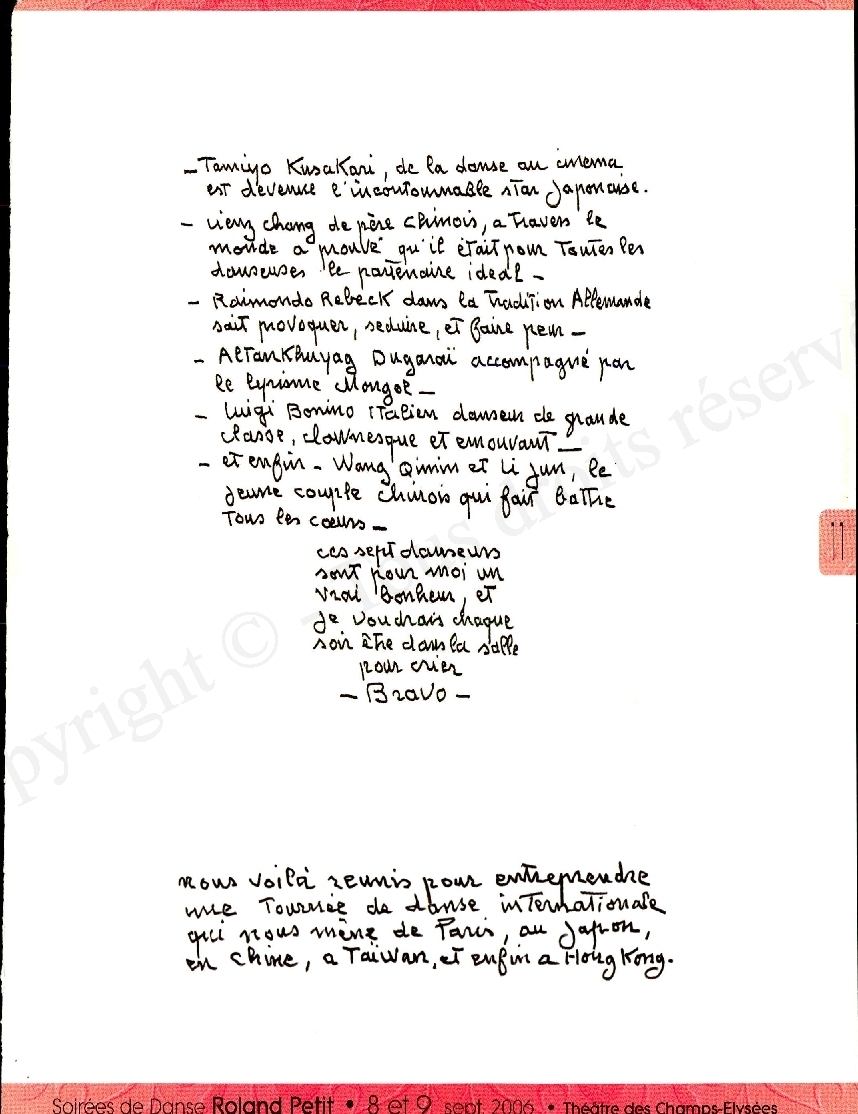 - Tamiyo Kusakari, de la danse au cinema
est devenue l'incontournable star Japonaise.
- Lienz chang de père chinois, a travers le
monde a prouvé qu'il était pour toutes les
danseuses le partenaire ideal -
- Raimondo Rebeck dans la tradition Allemande
sait provoquer, seduire, et faire peur -
- Altankhuyag Dugaraï accompagné par
le lyrisme Mongol -
- Luigi Bonino italien danseur de grande
classe, clownesque et emouvant -
- et enfin - Wang Qimin et Li Jun, le
jeune couple chinois qui fait battre
tous les cœurs -
ces sept danseurs
sont pour moi un
vrai bonheur, et
je voudrais chaque
soir être dans la salle
pour crier
- Bravo -
11
nous voilà reunis pour entreprendre
une Tournée de danse internationale
qui nous mène de Paris, au Japon,
en chine, a Taïwan, et enfin a Hong Kong.
Soirées de Danse Roland Petit • 8 et 9 sept. 2006 • Théâtre des Champs-Elysées
pyright © - Tous droits réservé